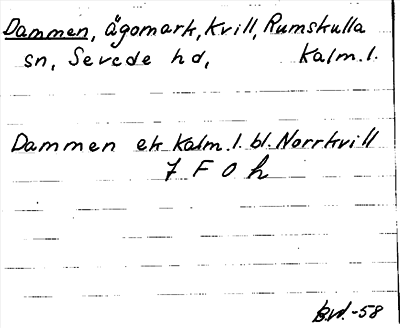 Dammen, ägomark, Kvill, Rumskulla
sn, Sevede hd, Kalm. l.
Dammen ek Kalm. l. bl. Norrkvill
7 F 0 h
Bvd. -58